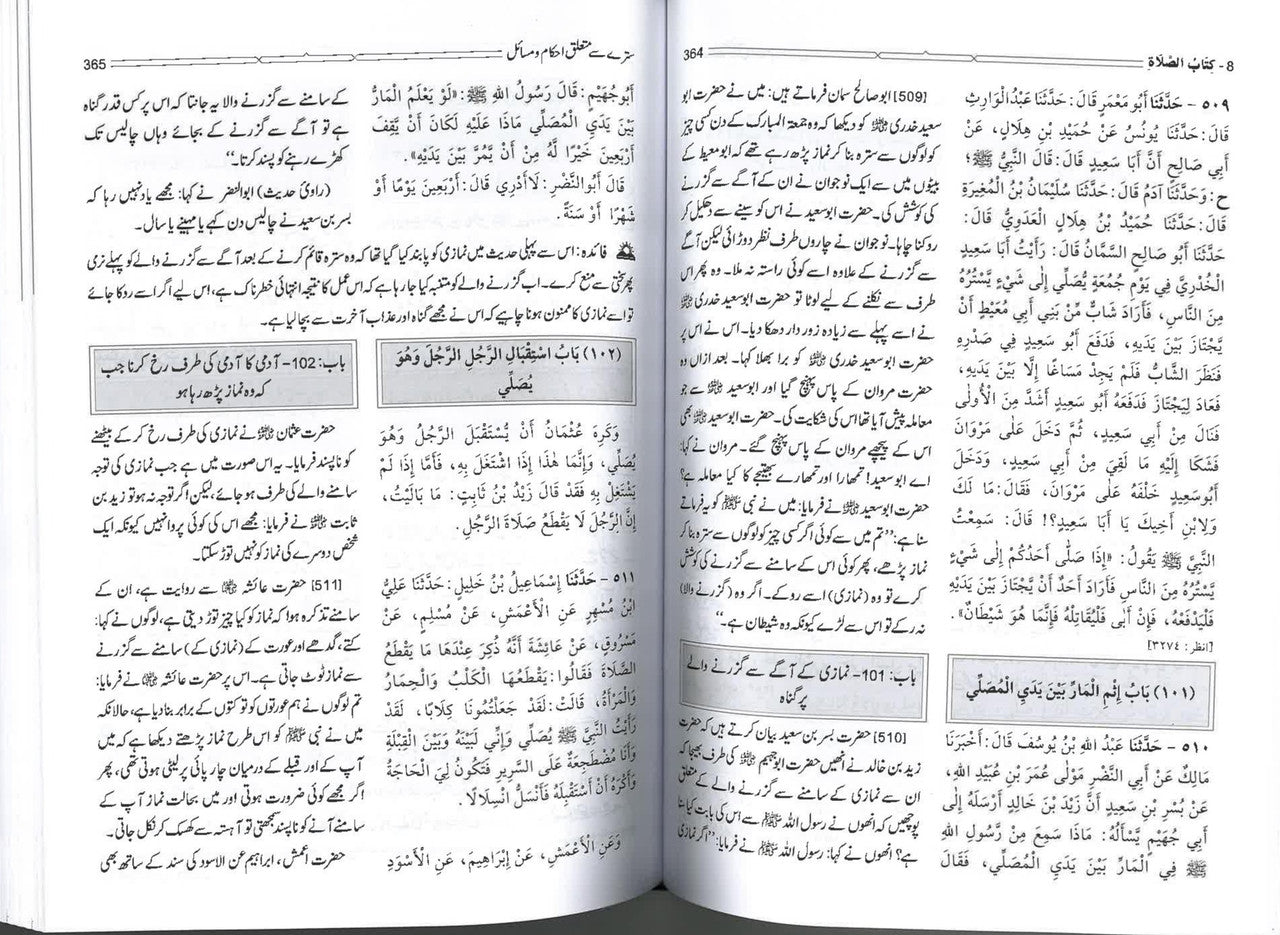 8- كِتَابُ الصَّلَاةِ
364
٥٠٩ - حَدَّثَنَا أَبُو مَعْمَرٍ قَالَ: حَدَّثَنَا عَبْدُ الْوَارِثِ
قَالَ: حَدَّثَنَا يُونُسُ عَنْ حُمَيْدِ بْنِ هِلَالٍ، عَنْ
أَبِي صَالِحٍ أَنَّ أَبَا سَعِيدٍ قَالَ: قَالَ النَّبِيُّ ﷺ؛
ح: وَحَدَّثَنَا آدَمُ قَالَ: حَدَّثَنَا سُلَيْمَانُ بْنُ الْمُغِيرَةِ
قَالَ: حَدَّثَنَا حُمَيْدُ بْنُ هِلَالٍ الْعَدَوِيُّ قَالَ:
حَدَّثَنَا أَبُو صَالِحٍ السَّمَّانُ قَالَ: رَأَيْتُ أَبَا سَعِيدٍ
الْخُدْرِيَّ فِي يَوْمِ جُمُعَةٍ يُصَلِّي إِلَى شَيْءٍ يَسْتُرُهُ
مِنَ النَّاسِ، فَأَرَادَ شَابٌّ مِّنْ بَنِي أَبِي مُعَيْطٍ أَنْ
يَجْتَازَ بَيْنَ يَدَيْهِ، فَدَفَعَ أَبُو سَعِيدٍ فِي صَدْرِهِ
فَنَظَرَ الشَّابُّ فَلَمْ يَجِدْ مَسَاغًا إِلَّا بَيْنَ يَدَيْهِ،
فَعَادَ لِيَجْتَازَ فَدَفَعَهُ أَبُو سَعِيدٍ أَشَدَّ مِنَ الْأُولَى
فَنَالَ مِنْ أَبِي سَعِيدٍ، ثُمَّ دَخَلَ عَلَى مَرْوَانَ
فَشَكَا إِلَيْهِ مَا لَقِيَ مِنْ أَبِي سَعِيدٍ، وَدَخَلَ
أَبُو سَعِيدٍ خَلْفَهُ عَلَى مَرْوَانَ، فَقَالَ: مَا لَكَ
وَلِابْنِ أَخِيكَ يَا أَبَا سَعِيدٍ؟! قَالَ: سَمِعْتُ
النَّبِيَّ ﷺ يَقُولُ: «إِذَا صَلَّى أَحَدُكُمْ إِلَى شَيْءٍ
يَّسْتُرُهُ مِنَ النَّاسِ فَأَرَادَ أَحَدٌ أَنْ يَجْتَازَ بَيْنَ يَدَيْهِ
فَلْيَدْفَعْهُ، فَإِنْ أَبَى فَلْيُقَاتِلْهُ فَإِنَّمَا هُوَ شَيْطَانٌ».
[انظر: ٣٢٧٤]
(١٠١) بَابُ إِثْمِ الْمَارِّ بَيْنَ يَدَيِ الْمُصَلِّي
٥١٠ - حَدَّثَنَا عَبْدُ اللهِ بْنُ يُوسُفَ قَالَ: أَخْبَرَنَا
مَالِكٌ عَنْ أَبِي النَّضْرِ مَوْلَى عُمَرَ بْنِ عُبَيْدِ اللهِ،
عَنْ بُسْرِ بْنِ سَعِيدٍ أَنَّ زَيْدَ بْنَ خَالِدٍ أَرْسَلَهُ إِلَى
أَبِي جُهَيْمٍ يَسْأَلُهُ: مَاذَا سَمِعَ مِنْ رَّسُولِ اللهِ
ﷺ فِي الْمَارِّ بَيْنَ يَدَيِ الْمُصَلِّي، فَقَالَ
[509] ابوصالح سمان فرماتے ہیں: میں نے حضرت ابو
سعید خدری ؓ کو دیکھا کہ وہ جمعۃ المبارک کے دن کسی چیز
کو لوگوں سے سترہ بنا کر نماز پڑھ رہے تھے کہ ابومعیط کے
بیٹوں میں سے ایک نوجوان نے ان کے آگے سے گزرنے
کی کوشش کی۔ حضرت ابوسعید نے اس کو سینے سے دھکیل کر
روکنا چاہا۔ نوجوان نے چاروں طرف نظر دوڑائی لیکن آگے
سے گزرنے کے علاوہ اسے کوئی راستہ نہ ملا۔ وہ پھر اس
طرف سے نکلنے کے لیے لوٹا تو حضرت ابوسعید خدری ؓ
نے اسے پہلے سے زیادہ زوردار دھکا دیا۔ اس نے اس پر
حضرت ابوسعید خدری ؓ کو برا بھلا کہا۔ بعد ازاں وہ
حضرت مروان کے پاس پہنچ گیا اور ابوسعید ؓ سے جو
معاملہ پیش آیا تھا اس کی شکایت کی۔ حضرت ابوسعید ؓ بھی
اس کے پیچھے مروان کے پاس پہنچ گئے۔ مروان نے کہا:
اے ابوسعید! تمھارا اور تمھارے بھتیجے کا کیا معاملہ ہے؟
حضرت ابوسعید ؓ نے فرمایا: میں نے نبی ﷺ کو یہ فرماتے
سنا ہے: ’’تم میں سے کوئی اگر کسی چیز کو لوگوں سے سترہ بنا کر
نماز پڑھے، پھر کوئی اس کے سامنے سے گزرنے کی کوشش
کرے تو وہ (نمازی) اسے روکے۔ اگر وہ (گزرنے والا)
نہ رکے تو اس سے لڑے کیونکہ وہ شیطان ہے۔‘‘
باب: 101- نمازی کے آگے سے گزرنے والے
پر گناہ
[510] حضرت بسر بن سعید بیان کرتے ہیں کہ حضرت
زید بن خالد نے انھیں حضرت ابوجہیم ؓ کی طرف بھیجا کہ
ان سے نمازی کے سامنے سے گزرنے والے کے متعلق
پوچھیں کہ انھوں نے رسول اللہ ﷺ سے اس کی بابت کیا سنا
ہے؟ انھوں نے کہا: رسول اللہ ﷺ نے فرمایا: ’’اگر نمازی
سترے سے متعلق احکام و مسائل
365
أَبُو جُهَيْمٍ: قَالَ رَسُولُ اللهِ ﷺ: «لَوْ يَعْلَمُ الْمَارُّ
بَيْنَ يَدَيِ الْمُصَلِّي مَاذَا عَلَيْهِ لَكَانَ أَنْ يَّقِفَ
أَرْبَعِينَ خَيْرًا لَّهُ مِنْ أَنْ يَّمُرَّ بَيْنَ يَدَيْهِ».
قَالَ أَبُو النَّضْرِ: لَا أَدْرِي قَالَ: أَرْبَعِينَ يَوْمًا أَوْ
شَهْرًا أَوْ سَنَةً.
کے سامنے سے گزرنے والا یہ جانتا کہ اس پر کس قدر گناہ
ہے تو آگے سے گزرنے کے بجائے وہاں چالیس تک
کھڑے رہنے کو پسند کرتا۔‘‘
(راوئ حدیث) ابوالنضر نے کہا: مجھے یاد نہیں رہا کہ
بسر بن سعید نے چالیس دن کہے یا مہینے یا سال۔
فائدہ: اس سے پہلی حدیث میں نمازی کو پابند کیا گیا تھا کہ وہ سترہ قائم کرنے کے بعد آگے سے گزرنے والے کو پہلے نرمی
پھر سختی سے منع کرے۔ اب گزرنے والے کو متنبہ کیا جا رہا ہے کہ اس عمل کا نتیجہ انتہائی خطرناک ہے، اس لیے اگر اسے روکا جائے
تو اسے نمازی کا ممنون ہونا چاہیے کہ اس نے مجھے گناہ اور عذاب آخرت سے بچا لیا ہے۔
(١٠٢) بَابُ اسْتِقْبَالِ الرَّجُلِ الرَّجُلَ وَهُوَ
يُصَلِّي
وَكَرِهَ عُثْمَانُ أَنْ يُّسْتَقْبَلَ الرَّجُلُ وَهُوَ
يُصَلِّي، وَإِنَّمَا هٰذَا إِذَا اشْتَغَلَ بِهِ، فَأَمَّا إِذَا لَمْ
يَشْتَغِلْ بِهِ فَقَدْ قَالَ زَيْدُ بْنُ ثَابِتٍ: مَا بَالَيْتُ،
إِنَّ الرَّجُلَ لَا يَقْطَعُ صَلَاةَ الرَّجُلِ.
٥١١ - حَدَّثَنَا إِسْمَاعِيلُ بْنُ خَلِيلٍ: حَدَّثَنَا عَلِيُّ
ابْنُ مُسْهِرٍ عَنِ الْأَعْمَشِ، عَنْ مُسْلِمٍ، عَنْ
مَسْرُوقٍ، عَنْ عَائِشَةَ أَنَّهُ ذُكِرَ عِنْدَهَا مَا يَقْطَعُ
الصَّلَاةَ فَقَالُوا: يَقْطَعُهَا الْكَلْبُ وَالْحِمَارُ
وَالْمَرْأَةُ، قَالَتْ: لَقَدْ جَعَلْتُمُونَا كِلَابًا، لَقَدْ
رَأَيْتُ النَّبِيَّ ﷺ يُصَلِّي وَإِنِّي لَبَيْنَهُ وَبَيْنَ الْقِبْلَةِ
وَأَنَا مُضْطَجِعَةٌ عَلَى السَّرِيرِ فَتَكُونُ لِيَ الْحَاجَةُ
وَأَكْرَهُ أَنْ أَسْتَقْبِلَهُ فَأَنْسَلُّ انْسِلَالًا.
وَعَنِ الْأَعْمَشِ، عَنْ إِبْرَاهِيمَ، عَنِ الْأَسْوَدِ
باب: 102- آدمی کا آدمی کی طرف رخ کرنا جب
کہ وہ نماز پڑھ رہا ہو
حضرت عثمان ؓ نے نمازی کی طرف رخ کر کے بیٹھنے
کو ناپسند فرمایا۔ یہ اس صورت میں ہے جب نمازی کی توجہ
سامنے والے کی طرف ہو جائے، لیکن اگر توجہ نہ ہو تو زید بن
ثابت ؓ نے فرمایا: مجھے اس کی کوئی پروا نہیں کیونکہ ایک
شخص دوسرے کی نماز کو نہیں توڑ سکتا۔
[511] حضرت عائشہ ؓ سے روایت ہے، ان کے
سامنے تذکرہ ہوا کہ نماز کو کیا چیز توڑ دیتی ہے، لوگوں نے کہا:
کتے، گدھے اور عورت کے (نمازی کے) سامنے سے گزرنے
سے نماز ٹوٹ جاتی ہے۔ اس پر حضرت عائشہ ؓ نے فرمایا:
تم لوگوں نے ہم عورتوں کو تو کتوں کے برابر بنا دیا ہے، حالانکہ
میں نے نبی ﷺ کو اس طرح نماز پڑھتے دیکھا ہے کہ میں
آپ کے اور قبلے کے درمیان چارپائی پر لیٹی ہوتی تھی، پھر
اگر مجھے کوئی ضرورت ہوتی اور میں بحالت نماز آپ کے
سامنے آنے کو ناپسند سمجھتی تو آہستہ سے کھسک کر نکل جاتی۔
حضرت اعمش، ابراہیم عن الاسود کی سند کے ساتھ بھی